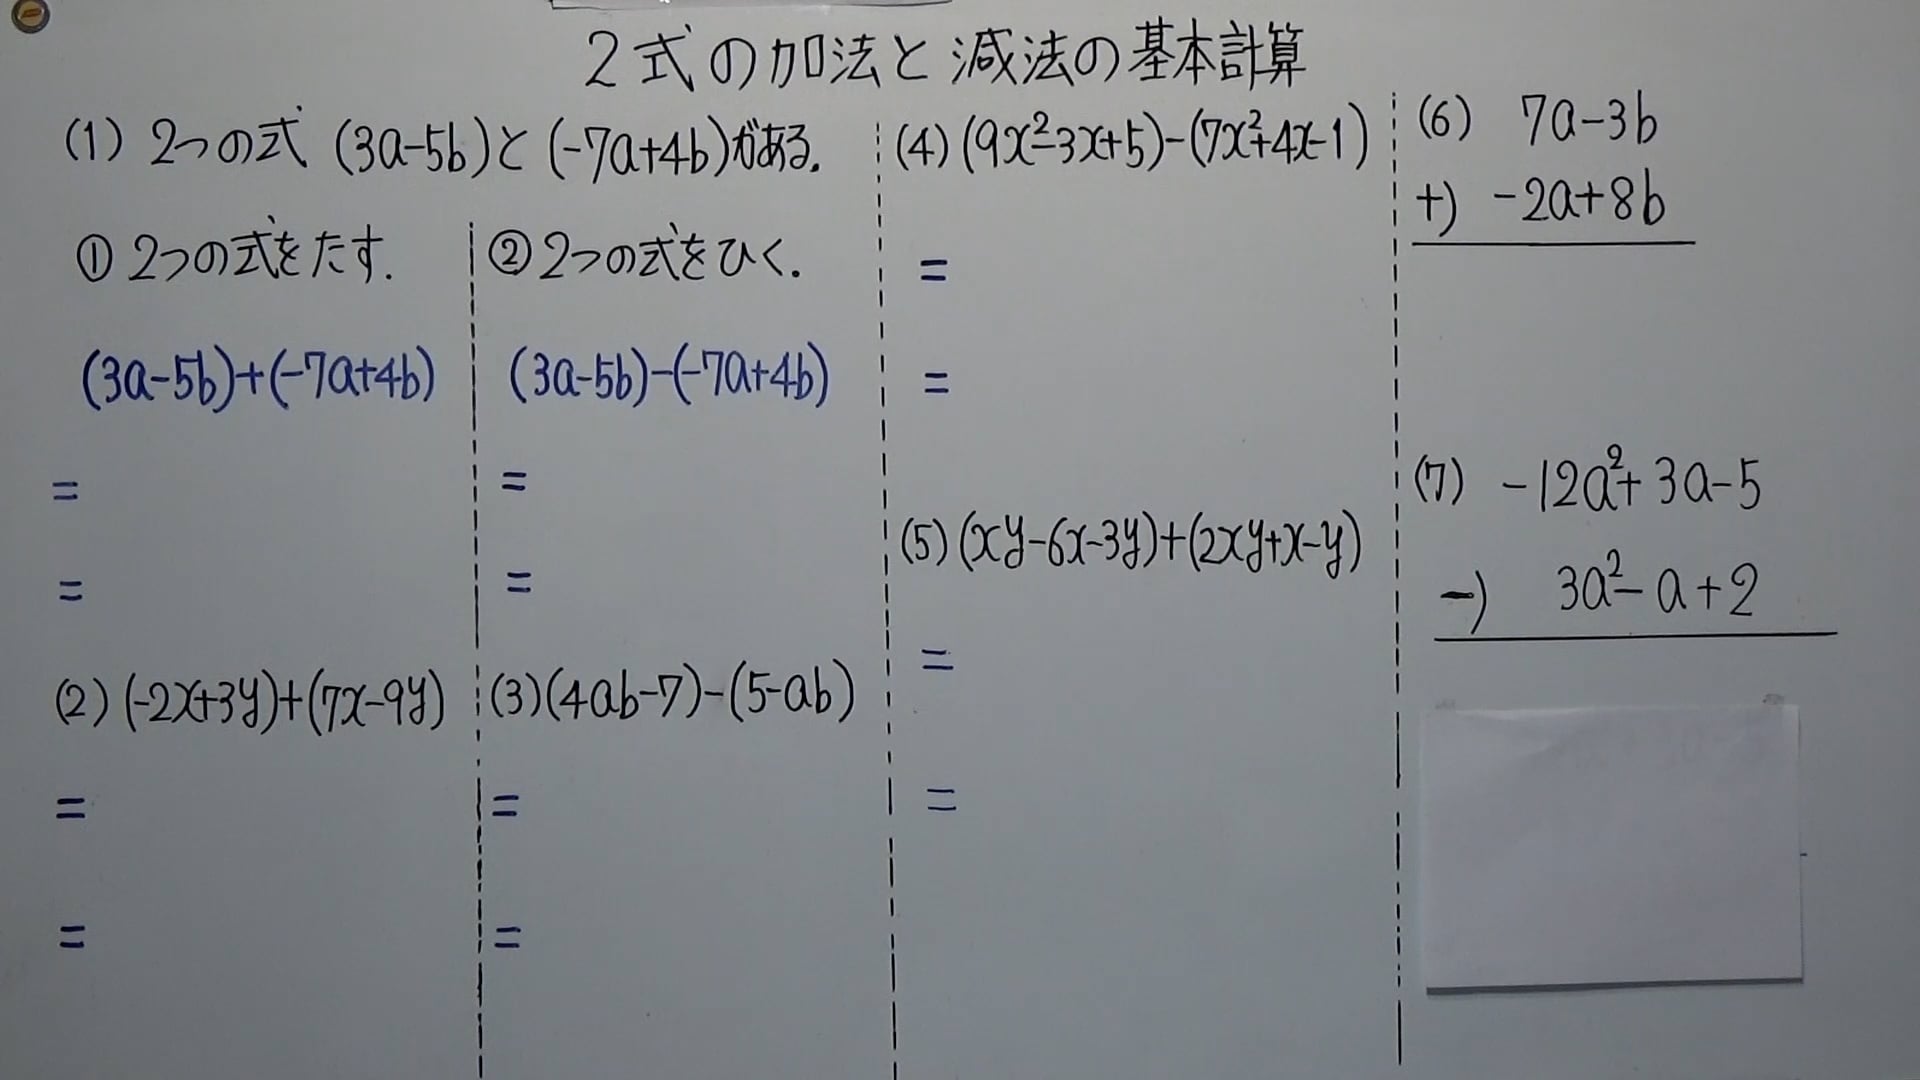 2式の加法と減法の基本計算
(1) 2つの式 (3a-5b)と(-7a+4b)がある.
① 2つの式をたす.
(3a-5b)+(-7a+4b)
=
=
② 2つの式をひく.
(3a-5b)-(-7a+4b)
=
=
(2) (-2x+3y)+(7x-9y)
=
=
(3) (4ab-7)-(5-ab)
=
=
(4) (9x²-3x+5)-(7x²+4x-1)
=
=
(5) (xy-6x-3y)+(2xy+x-y)
=
=
(6) 7a-3b
+) -2a+8b
(7) -12a²+3a-5
-) 3a²-a+2